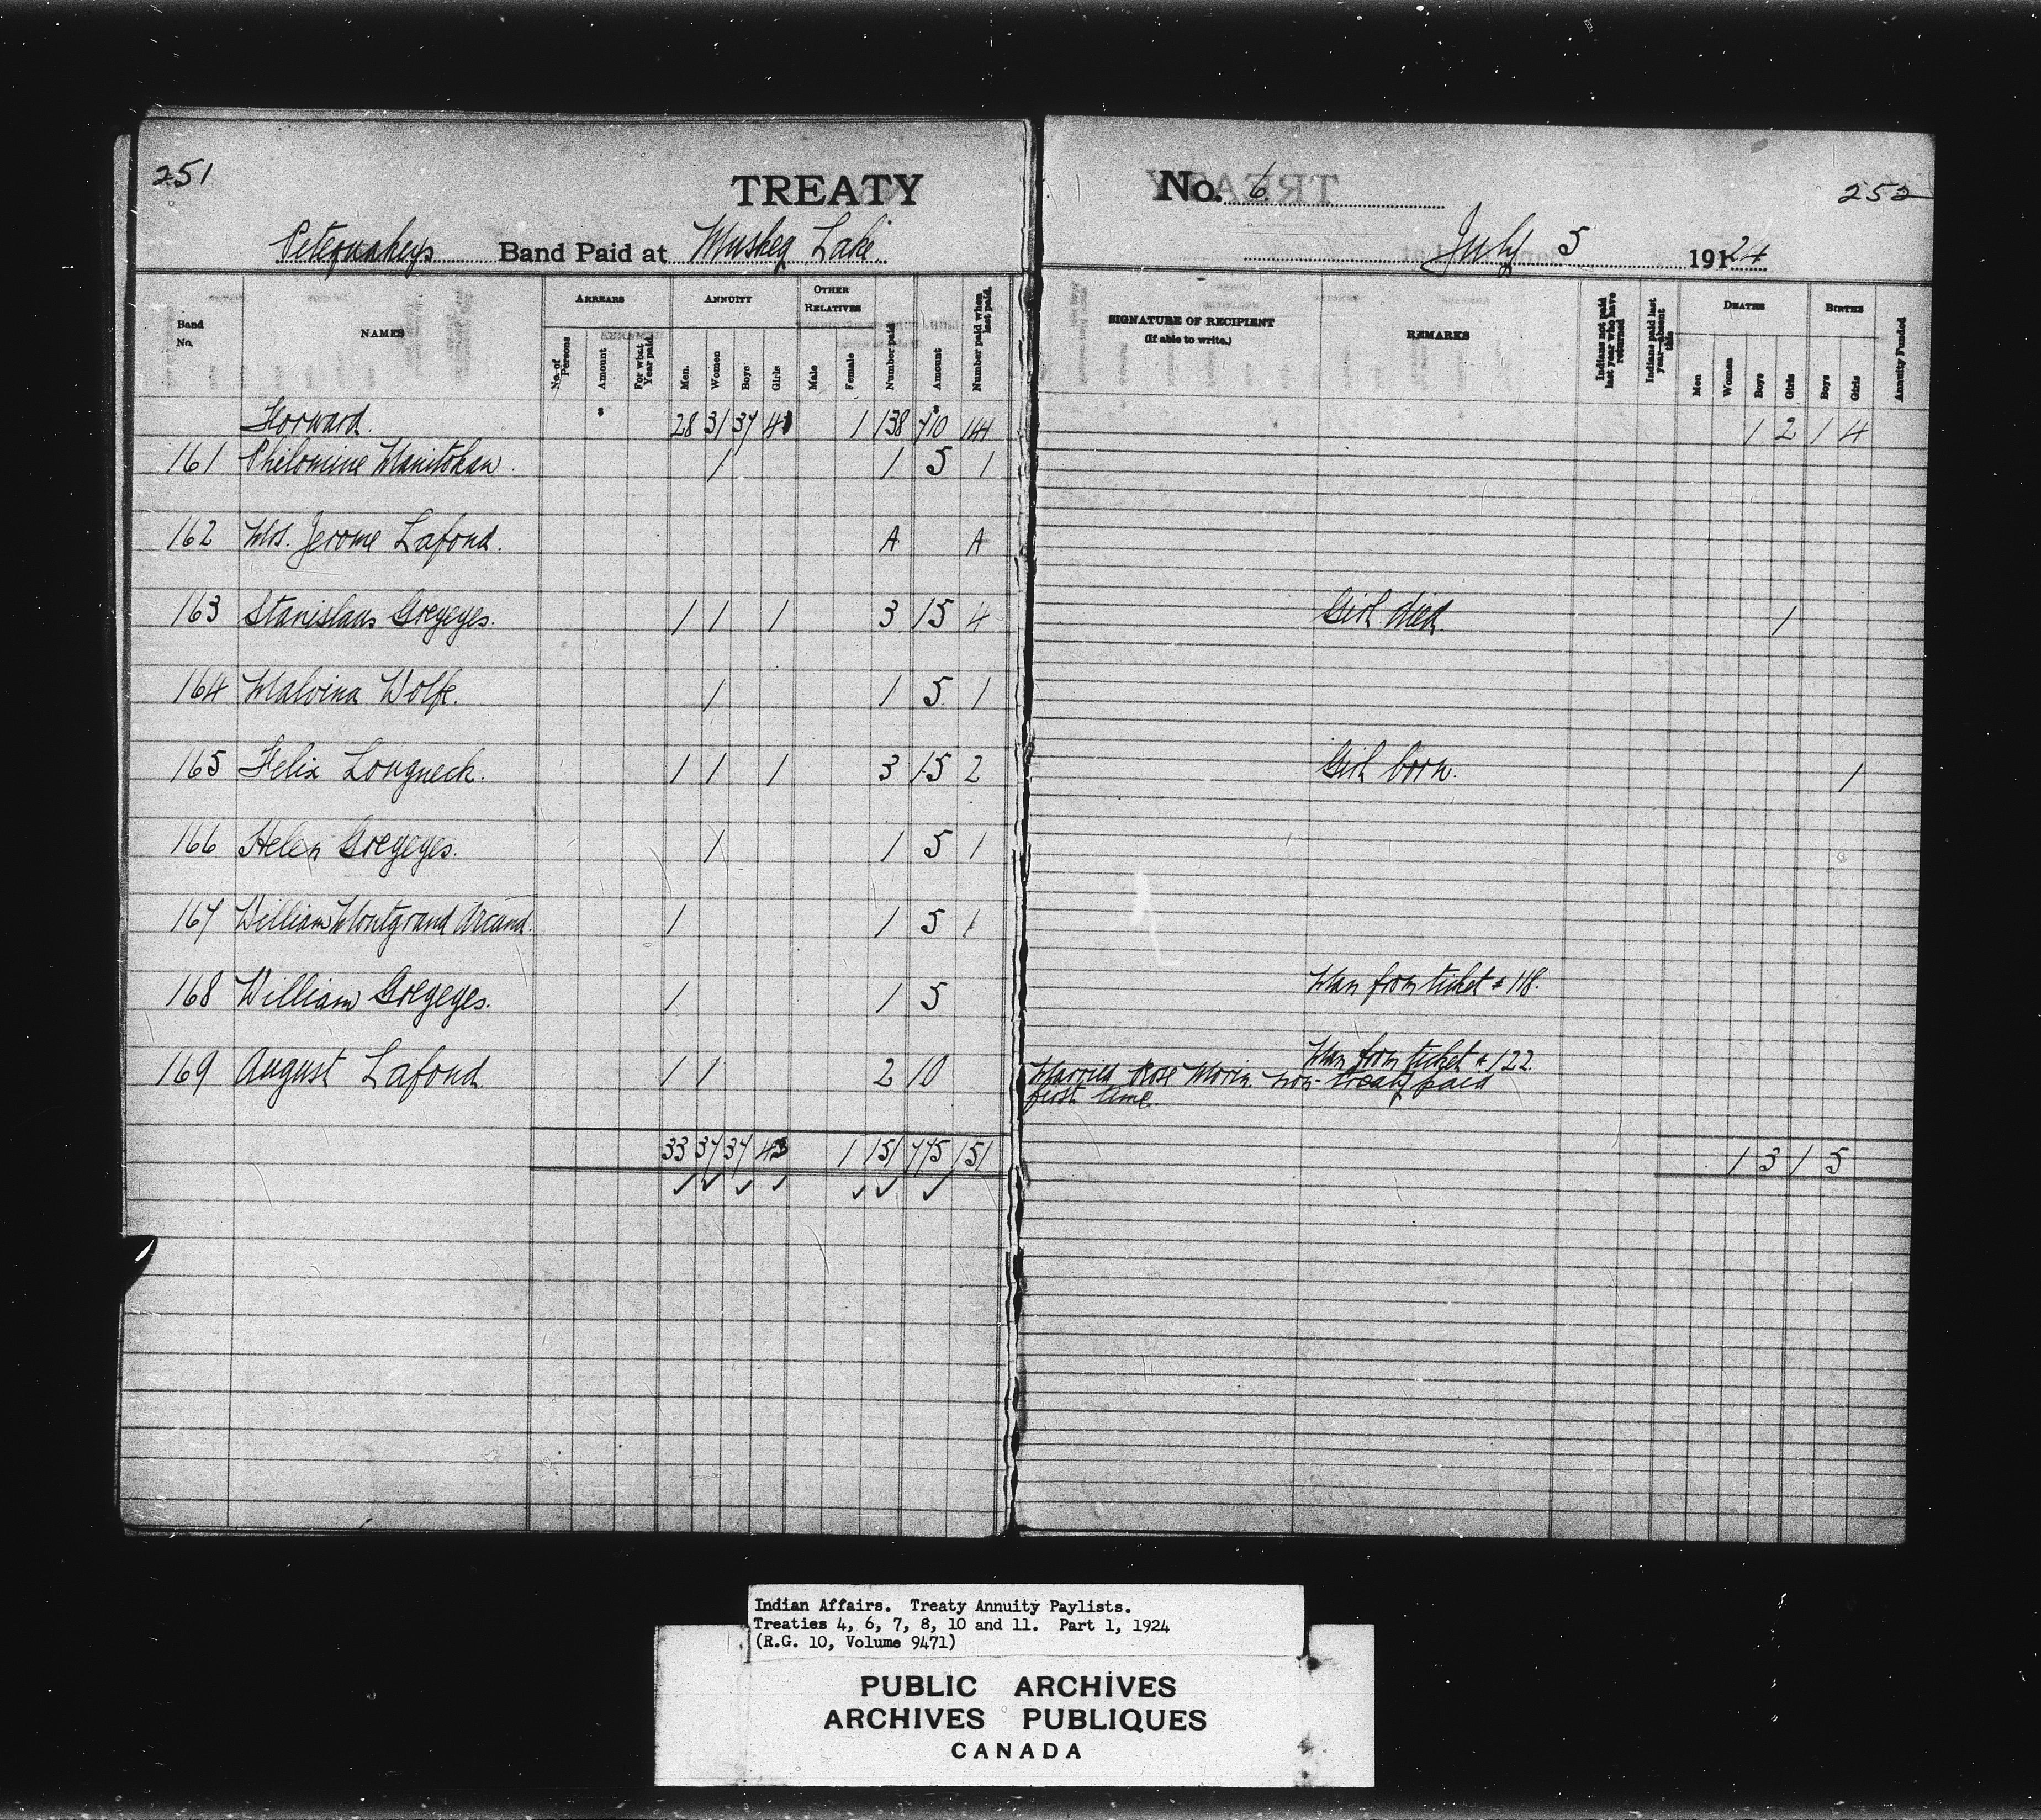 251
TREATY
No. 6.
252
Petequakeys Band Paid at Muskeg Lake.
July 5 19124
Band No.
NAMES
ARREARS
No. of Persons
Amount
For what Year paid.
ANNUITY
Men.
Women
Boys
Girls
OTHER RELATIVES
Male
Female
Number paid
Amount
Number paid when last paid.
SIGNATURE OF RECIPIENT
(If able to write.)
REMARKS
Indians not paid last year who have returned
Indians paid last year—absent this
DEATHS
Men
Women
Boys
Girls
BIRTHS
Boys
Girls
Annuity Funded
Forward. 28 31 37 41 1 138 710 144 1 2 1 4
161 Philomine Manitokan. 1 1 5 1
162 Mrs. Jerome Lafond. A A
163 Stanislaus Greyeyes. 1 1 1 3 15 4 Girl died. 1
164 Malvina Wolfe. 1 1 5 1
165 Felix Longneck. 1 1 1 3 15 2 Girl born. 1
166 Helen Greyeyes. 1 1 5 1
167 William Montgrand Arcand. 1 1 5 1
168 William Greyeyes. 1 1 5 Man from ticket # 118.
169 August Lafond 1 1 2 10 Man from ticket # 122.
Married Rose Morin non-treaty paid
first time
33 37 37 43 1 151 775 151 1 3 1 5
Indian Affairs. Treaty Annuity Paylists.
Treaties 4, 6, 7, 8, 10 and 11. Part 1, 1924
(R.G. 10, Volume 9471)
PUBLIC ARCHIVES
ARCHIVES PUBLIQUES
CANADA